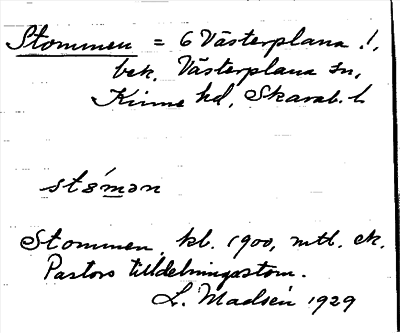 Stommen = 6 Västerplana !,
bek. Västerplana sn,
Kinne hd, Skarab. l.
stómən
Stommen, kb. 1900, mtl. ek.
Pastors tilldelningsstom.
L. Madsén 1929